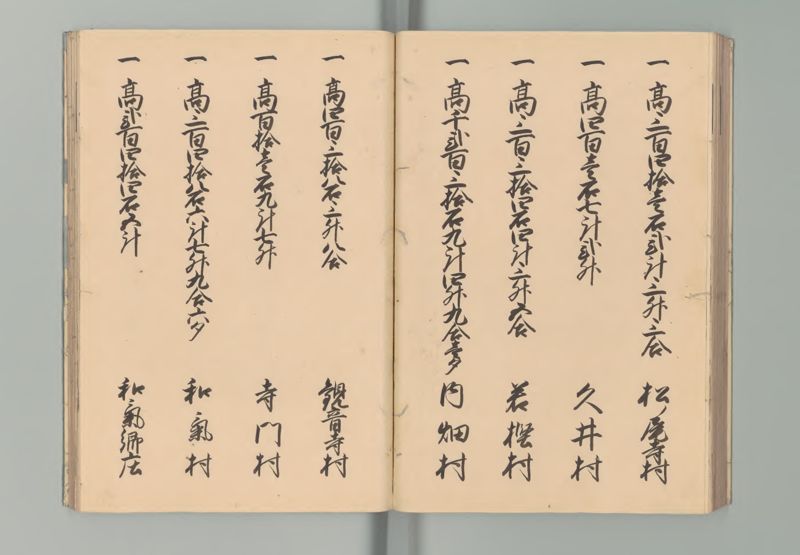 一 高三百四拾壱石弐斗三升三合 松ノ尾寺村
一 高四百壱石七斗弐升 久井村
一 高三百三拾四石四斗三升五合 若樫村
一 高千弐百三拾石九斗四升九合壱夕 内畑村
一 高四百三拾八石三升八合 観音寺村
一 高百拾壱石九斗七升 寺門村
一 高三百四拾八石六斗七升九合六夕 和氣村
一 高弐百四拾四石五斗 和氣郷庄